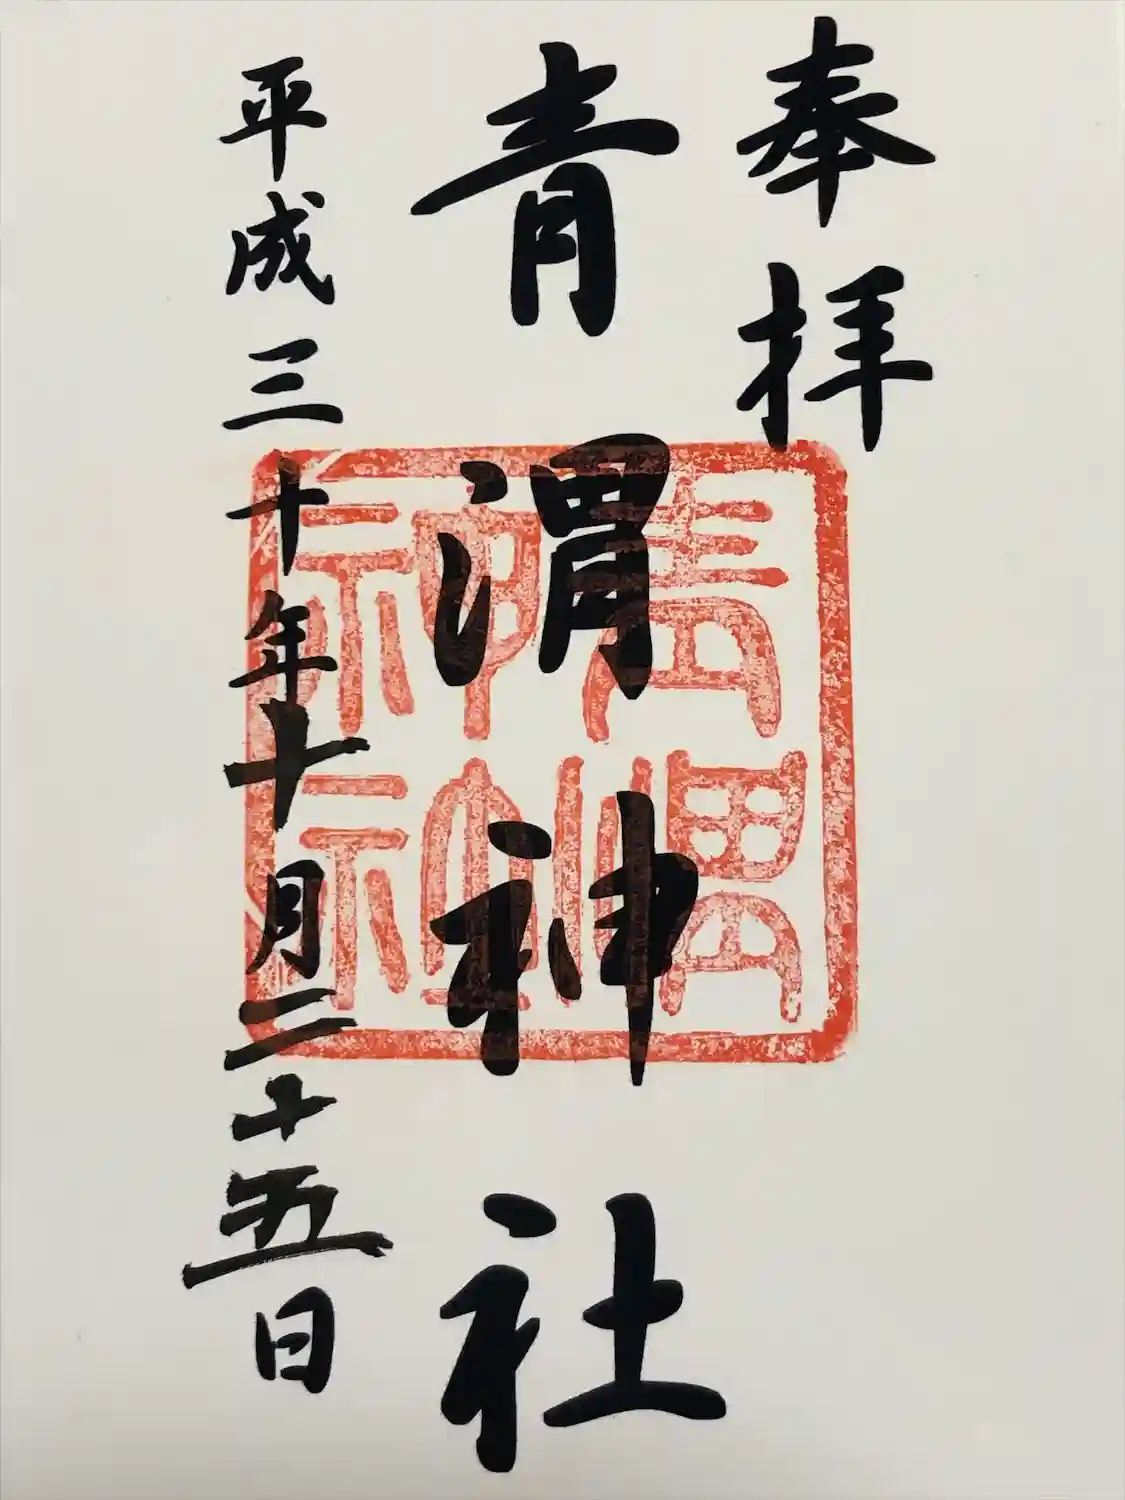 奉拝
青渭神社
平成三十年十月二十五日
青渭神社